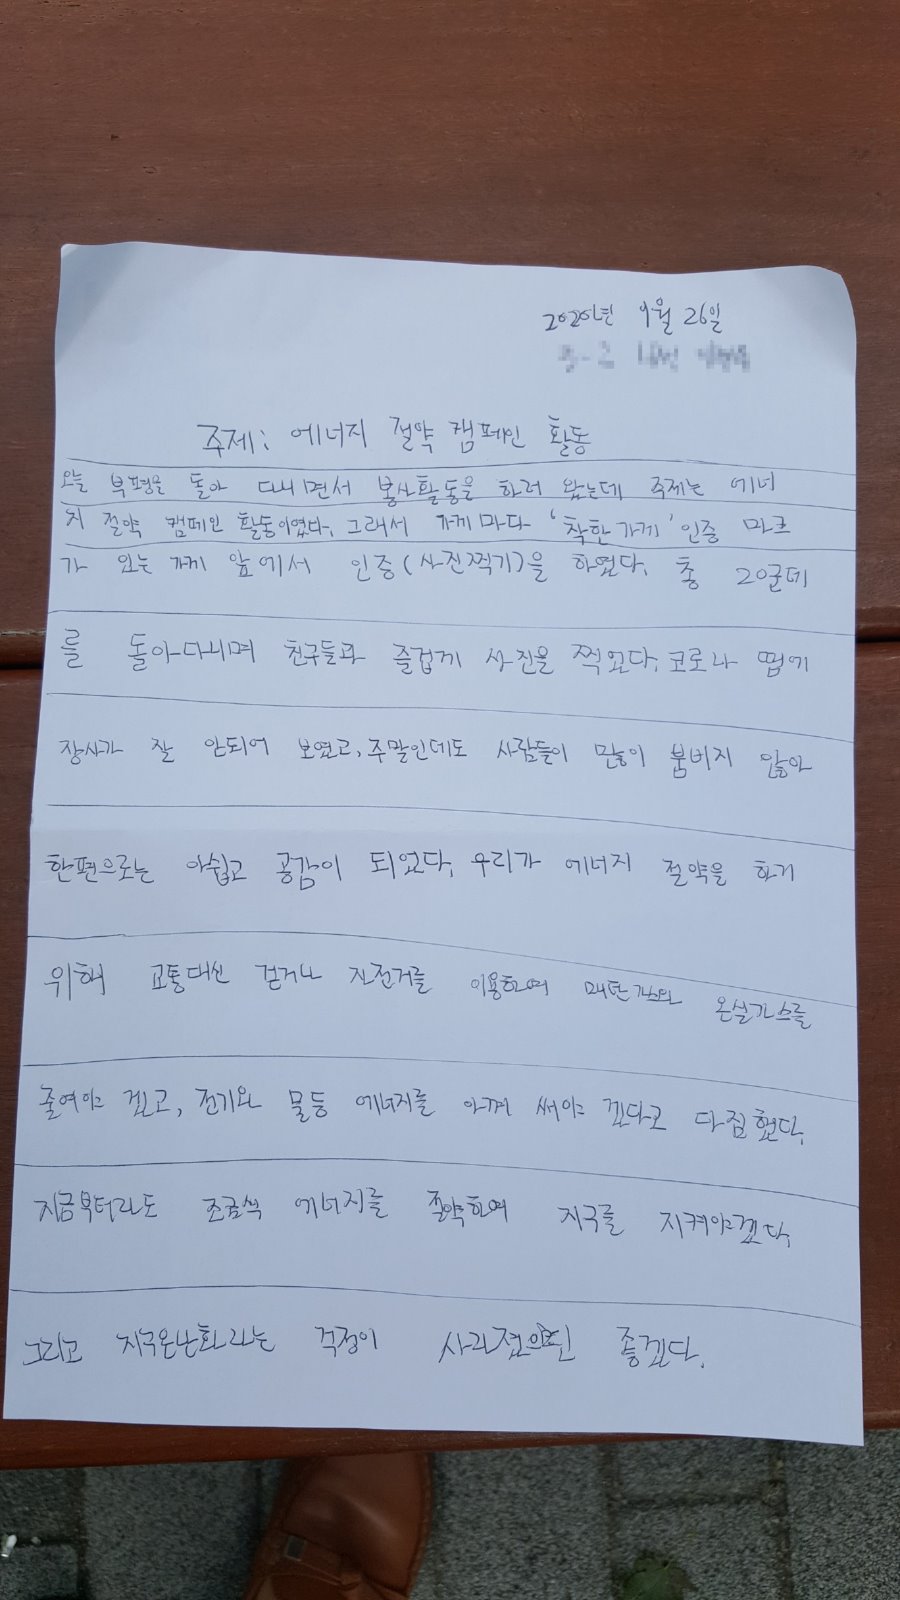 2020년 9월 26일
주제: 에너지 절약 캠페인 활동
오늘 부평을 돌아 다니면서 봉사활동을 하러 왔는데 주제는 에너
지 절약 캠페인 활동이였다. 그래서 가게마다 '착한가게' 인증 마크
가 있는 가게 앞에서 인증(사진찍기)을 하였다. 총 20군데
를 돌아다니며 친구들과 즐겁게 사진을 찍었다. 코로나 땜에
장사가 잘 안되어 보였고, 주말인데도 사람들이 많이 붐버지 않아
한편으로는 아쉽고 공감이 되었다. 우리가 에너지 절약을 하기
위해 교통대신 걷거나 자전거를 이용하여 매탄가스와 온실가스를
줄여야 겠고, 전기와 물등 에너지를 아껴 써야 겠다고 다짐했다.
지금부터라도 조금씩 에너지를 절약하여 지구를 지켜야겠다.
그리고 지구온난화라는 걱정이 사라졌으면 좋겠다.